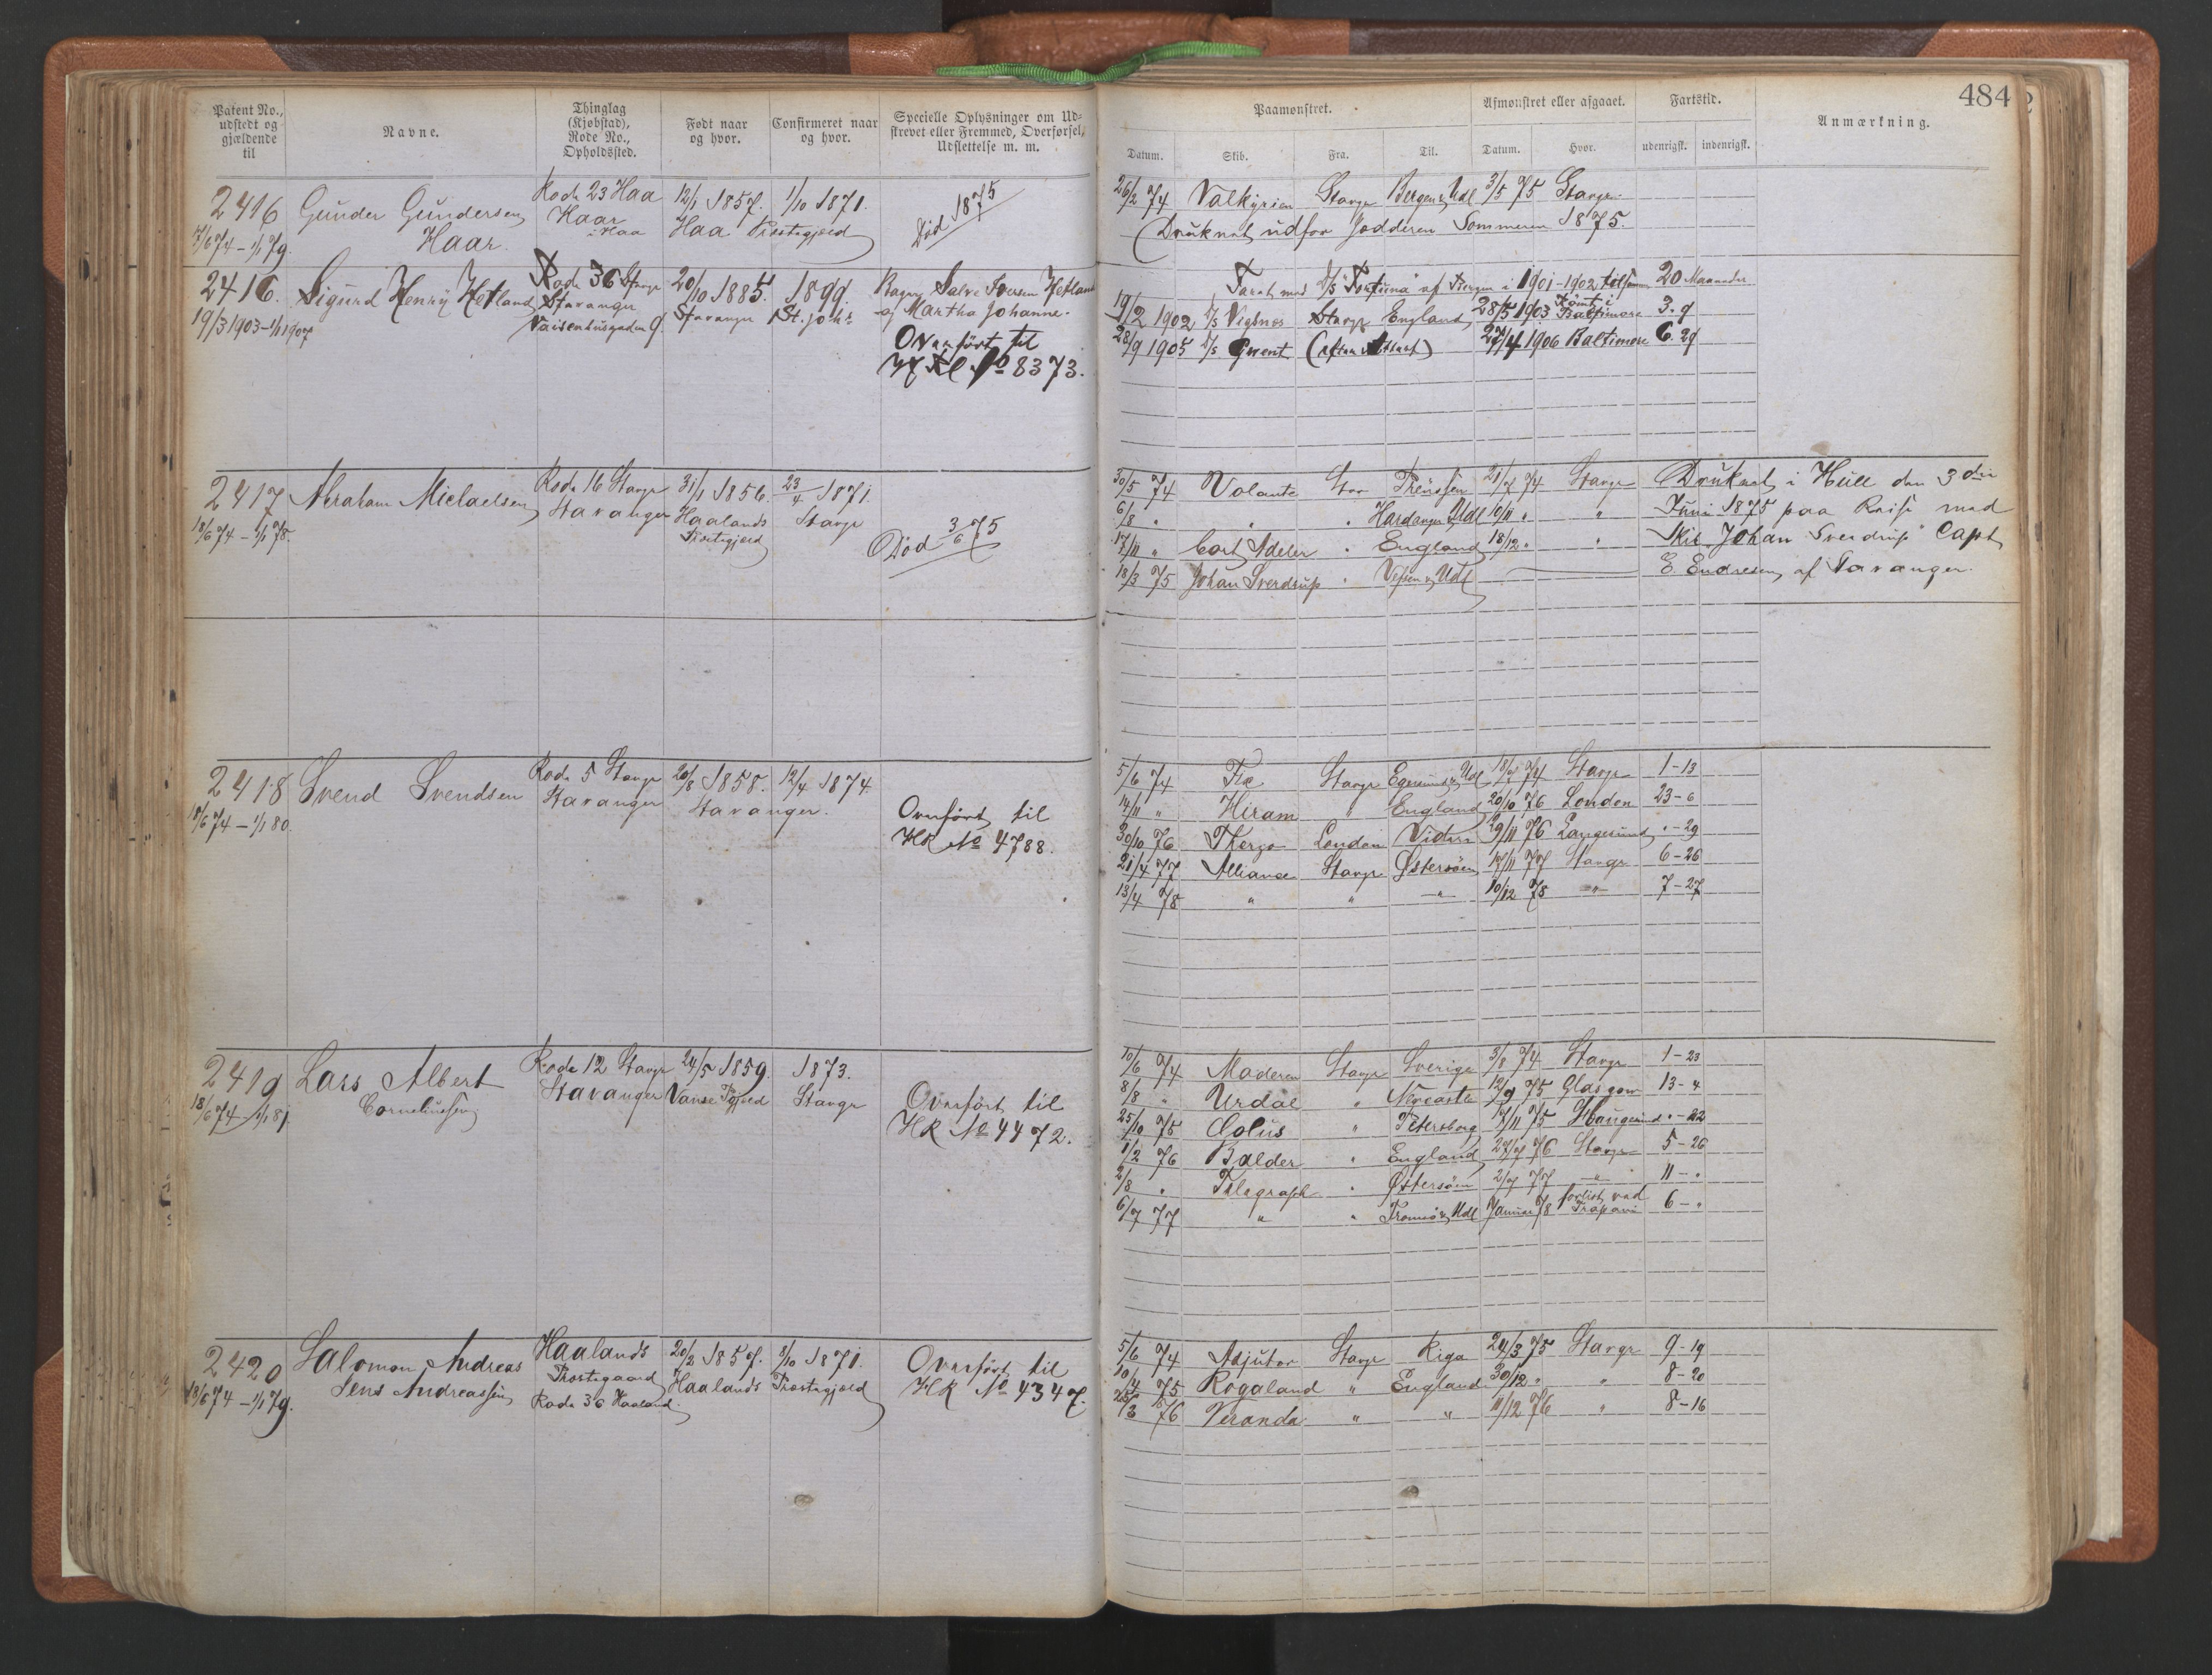 484
Patent No., udstedt og gjældende til
Navne.
Thinglag (Kjøbstad), Rode No., Opholdssted.
Født naar og hvor.
Confirmeret naar og hvor.
Specielle Oplysninger om Udskrevet eller Fremmed, Overførsel, Udslettelse m. m.
Paamønstret.
Datum.
Skib.
Fra.
Til.
Afmønstret eller afgaaet.
Datum.
Hvor.
Fartstid.
udenrigsk.
indenrigsk.
Anmærkning.
2416 Gunder Gundersen Rode 23 Haa 12/1 1857. 1/10 1871. Død 1875
7/6 74 – 1/1 79. Haar. Haar i Haa Haa Præstegjeld
26/2 74 Valkyrien Stavgr Bergen & Udl 3/5 75 Stavgr
(Druknet udfor Jædderen Sommeren 1875.
2416. Sigurd Henry Hetland Rode 36 Stavgr 20/10 1885. 1899. Salve Iversen Hetland
19/3 1903 – 1/1 1907 Stavanger Stavanger St. Joh. af Martha Johanne.
Vaisenhusgaden 9.
Overført til
H Rl No 8373.
Faret med D/S af Bergen i 1901-1902 tilsammen 20 Maaneder
19/2 1902 D/s Vigsnes Stavgr England 28/5 1903 Rømt i Baltimore 3. 9
28/9 1905 D/s Gwent (efter Attest) 27/4 1906 Baltimore 6. 29
2417 Abraham Michaelsen Rode 16 Stavgr 31/1 1856. 23/4 1871.
18/6 74 – 1/1 78. Stavanger Haalands Præstegjeld Stavgr
Død 3/6 75
30/5 74 Volante Stav Preussen 21/7 74 Stavgr Druknet i Hull den 3die
6/8 " " " Hardanger & Udl 10/11 " " Juni 1875 paa Reise med
17/11 " Cort Adeler " England 18/12 " " Skib "Johan Sverdrup" Capt
18/3 75 Johan Sverdrup " Vefsen & Udl E. Endresen af Stavanger.
2418 Svend Svendsen Rode 5 Stavgr 20/8 1858. 12/4 1874.
18/6 74 – 1/1 80. Stavanger Stavanger.
Overført til
HR No 4788.
5/6 74 Fix Stavgr Egersund & Udl 18/7 74 Stavgr 1 – 13
14/11 " Hiram " England 20/10 76 London 23 – 6
30/10 76 London 29/11 76 Langesund " – 29
21/4 77 Alliance Stavgr Østersøen 17/11 77 Stavgr 6 – 26
13/4 78 " " " 10/12 78 " 7 – 27
2419 Lars Albert Rode 12 Stavgr 24/5 1859. 1873.
18/6 74 – 1/1 81. Corneliussen Stavanger Vanse Pgjeld Stavgr
Overført til
HR No 4472.
10/6 74 Maderen Stavgr Sverige 3/8 74 Stavgr 1 – 23
8/8 " Urdal " Newcastle 12/9 75 Glasgow 13 – 4
25/10 75 Colus " Petersborg 17/11 75 Haugesund " – 22
1/2 76 Balder " England 27/7 76 Stavgr 5 – 26
2/8 " Telegraph " Østersøen 2/7 77 " 11 – "
6/7 77 " " Tromsø & Udl Januar 78 forlist ved Trapani 6 – "
2420 Salomon Andreas Haalands 20/2 1857. 8/10 1871.
18/6 74 – 1/1 79. Jens Andreassen Præstegaard Haalands Præstegjeld
Rode 36 Haaland
Overført til
HR No 4347.
5/6 74 Adjutor Stavgr Riga 24/3 75 Stavgr 9 – 19
10/4 75 Rogaland " England 30/12 " " 8 – 20
25/3 76 Veranda " " 11/12 76 " 8 – 16